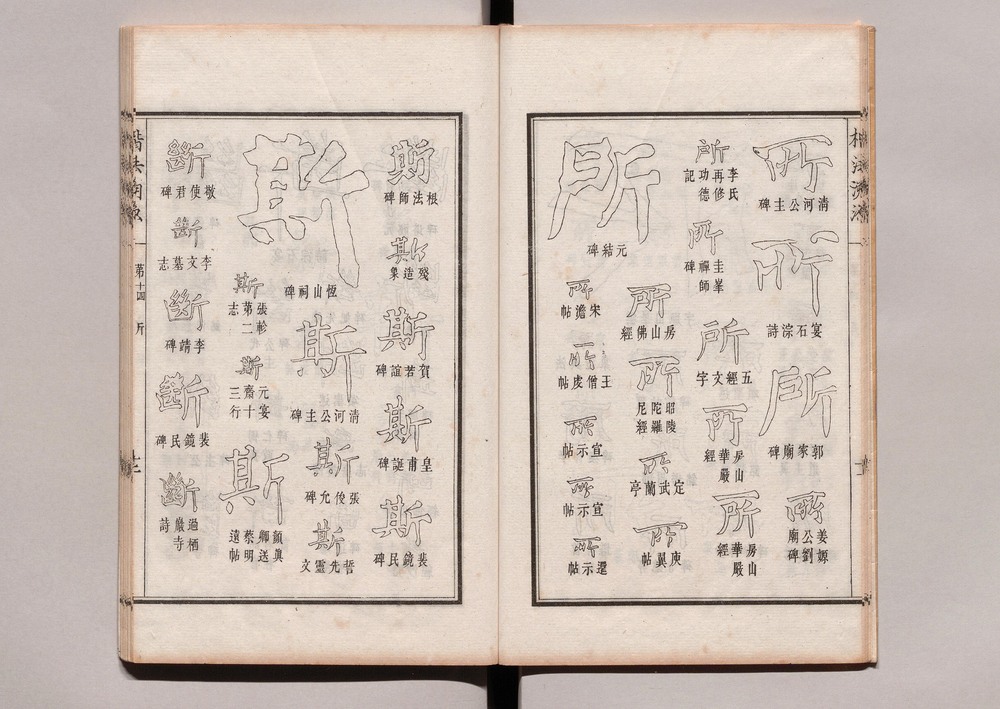 所
清河公主碑
所
宴石淙詩
所
郭家廟碑
所
姜嫄公劉廟碑
所
李氏再修功德記
所
圭峯禪師碑
所
五經文字
所
房山華嚴經
所
房山華嚴經
所
元結碑
所
房山佛經
所
昭陵陀羅尼經
所
定武蘭亭
所
庾翼帖
所
宋澹帖
所
王僧虔帖
所
宣示帖
所
宣示帖
所
還示帖
斯
根法師碑
斯
殘造象
斯
賀若誼碑
斯
皇甫誕碑
斯
裴鏡民碑
斯
恆山祠碑
斯
清河公主碑
斯
張允碑
斯
誓先靈文
斯
張軫第二志
斯
元宴齋三十行
斯
顏真卿送蔡明遠帖
斷
敬使君碑
斷
李文墓志
斷
李靖碑
斷
裴鏡民碑
斷
過栖巖寺詩
第十四 斤